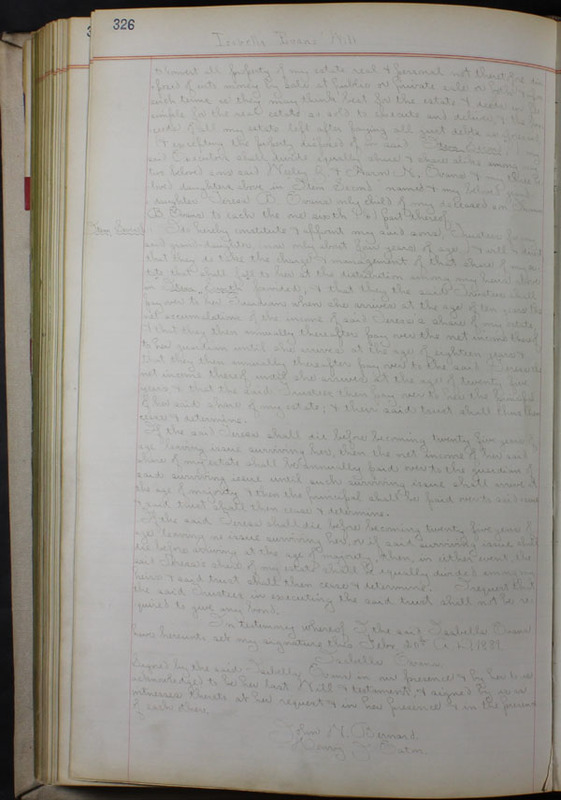 326
Isabella Evans' Will
to convert all property of my estate real & personal not therefore dis
posed of into money by sale at public or private sale or
such terms as they may think best for the estate &
simple for the real estate so sold to execute and deliver & the pro
ceeds of all my estate left after paying all just debts
& excepting the property disposed of in said Item Second my
said Executors shall divide equally share & share alike among
two beloved sons said Wesley & Aaron N. Evans & my
two daughters above in Item Second named & my beloved grand
daughter Teresa B. Evans only child of my deceased son
B Evans to each the one sixth part thereof
Item Seventh I do hereby constitute & appoint my said sons Trustees for my
said granddaughter, now only about four years of age & will & direct
that they do take the charge & management of that share of my es
tate that shall fall to her at the distribution among my heirs above
in Item provided, & that they the said Trustees shall
pay over to her Guardian when she arrives at the age of ten years the
net accumulations of the income of said Teresa's share of my estate
& that they then annually thereafter pay over the net income thereof
to her guardian until she arrives at the age of eighteen years &
that they then annually thereafter pay over to the said Teresa the
net income thereof until she arrives at the age of twenty five
years & that the said Trustees then pay over to her the principal
of her said share of my estate; & their said trust shall thus then
cease & determine.
If the said Teresa shall die before becoming twenty five years of
age leaving issue surviving her, then the net income of her said
share of my estate shall be annually paid over to the guardian of
said surviving issue until such surviving issue shall arrive at
the age of majority & then the principal shall be paid over to said issue
& said trust shall then cease & determine.
If the said Teresa shall die before becoming twenty five years of
age leaving no issue surviving her, or if said surviving issue shall
die before arriving at the age of majority, then, in either event the
said Teresa's share of my estate shall be equally divided among my
heirs & said trust shall then cease & determine. I request that
the said Trustees in executing the said trust shall not be re
quired to give any bond.
In testimony whereof I the said Isabella Evans
have hereunto set my signature this Feby 20th A.D. 1889.
Isabella Evans
Signed by the said Isabella Evans in our presence & by her
acknowledged to be her last Will & testament, & signed by us as
witnesses thereto at her request & in her presence & in the presence
of each other
John N. Bernard
Henry J. Eaton